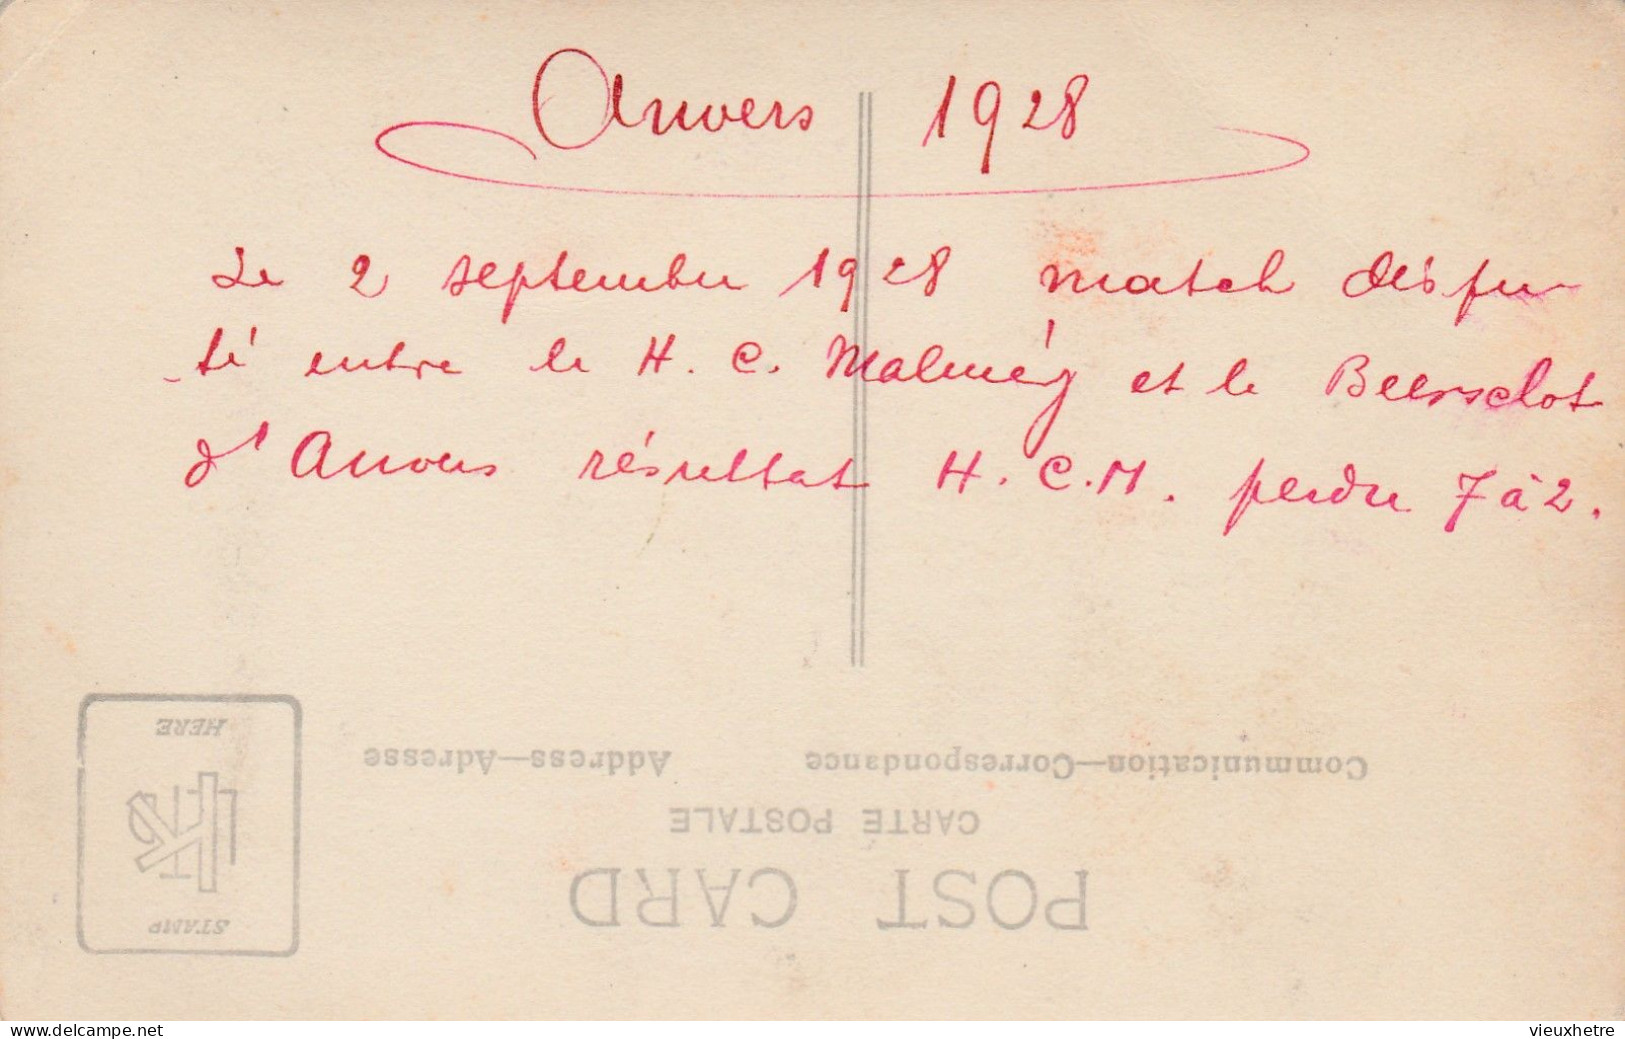 Anvers 1928
Le 2 septembre 1928 match dispu-
-té entre le H. C. Malmédy et le Beerschot
d'Anvers résultat H. C. M. perdu 7 à 2.
Communication—Correspondance
Address—Adresse
CARTE POSTALE
POST CARD
STAMP
HERE
www.delcampe.net
vieuxhetre